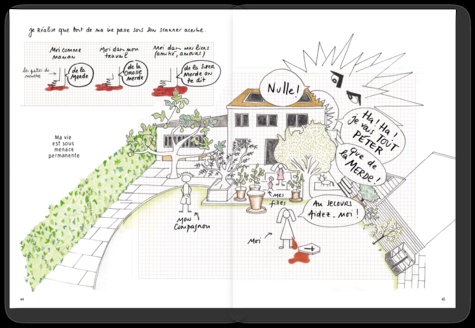 je réalise que tout de ma vie passe sous son scanner acerbe.
Moi comme
maman
de la
Merde
Moi dans mon
travail
de la
GROSSE
MERDE
Moi dans mes liens
(amitié, amours)
de la SUPER
MERDE on
te dit
Ma vie
est sous
menace
permanente
Nulle!
Ha! Ha!
je vais TOUT
PÉTER
que de
la MERDE!
mon
Compagnon
mes
filles
Moi
Au secours
Aidez-moi!
44
45